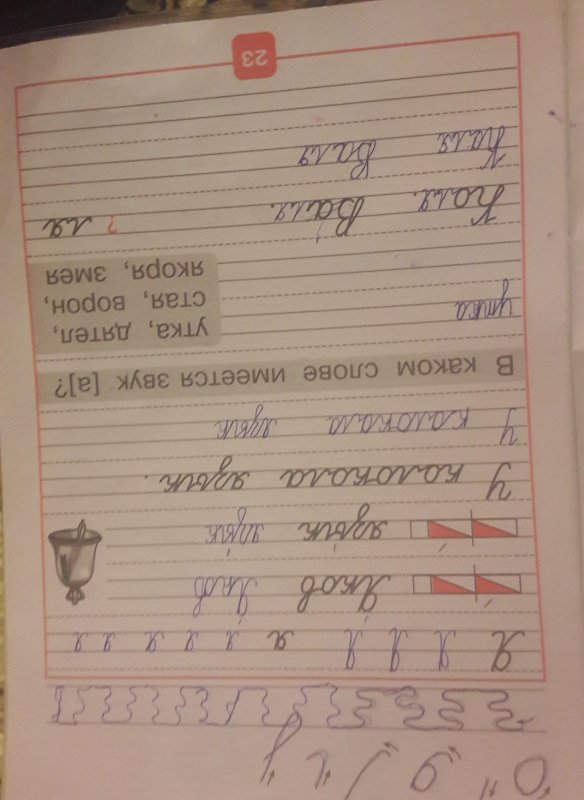 Я Я Я Я я я я я я я
Яков Яков
язык язык
У колокола язык.
У колокола язык
В каком слове имеется звук [а]?
утка
утка, дятел,
стая, ворон,
якоря, змея
Коля. Валя. ? ля
Коля Валя
23